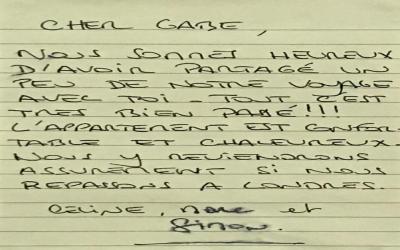 CHER GABE,
NOUS SOMMES HEUREUX
D'AVOIR PARTAGÉ UN
PEU DE NOTRE VOYAGE
AVEC TOI - TOUT C'EST
TRES BIEN PASSÉ!!!
L'APPARTEMENT EST CONFOR-
TABLE ET CHALEUREUX.
NOUS Y REVIENDRONS
ASSUREMENT SI NOUS
REPASSONS A LONDRES.
CELINE, et
Simon.